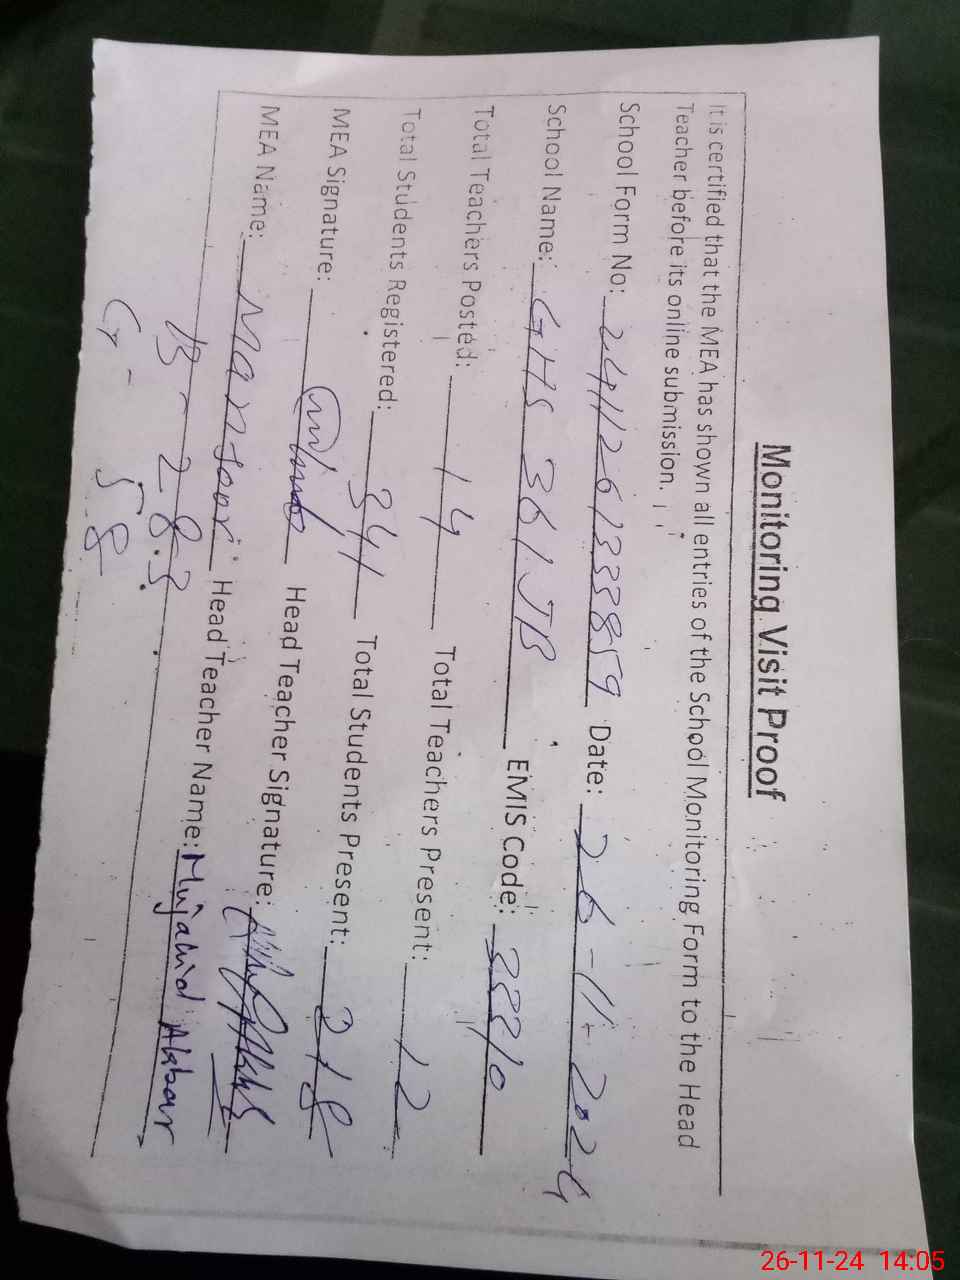 Monitoring Visit Proof
It is certified that the MEA has shown all entries of the School Monitoring Form to the Head
Teacher before its online submission.
School Form No: 241126133859 Date: 26-11-2024
School Name: GHS 361 JB EMIS Code:
Total Teachers Posted: 14 Total Teachers Present: 12
Total Students Registered: 341 Total Students Present: 218
MEA Signature: Head Teacher Signature:
MEA Name: Mansoor Head Teacher Name: Mujahid Akbar
B - 283
G - 58
26-11-24 14:05